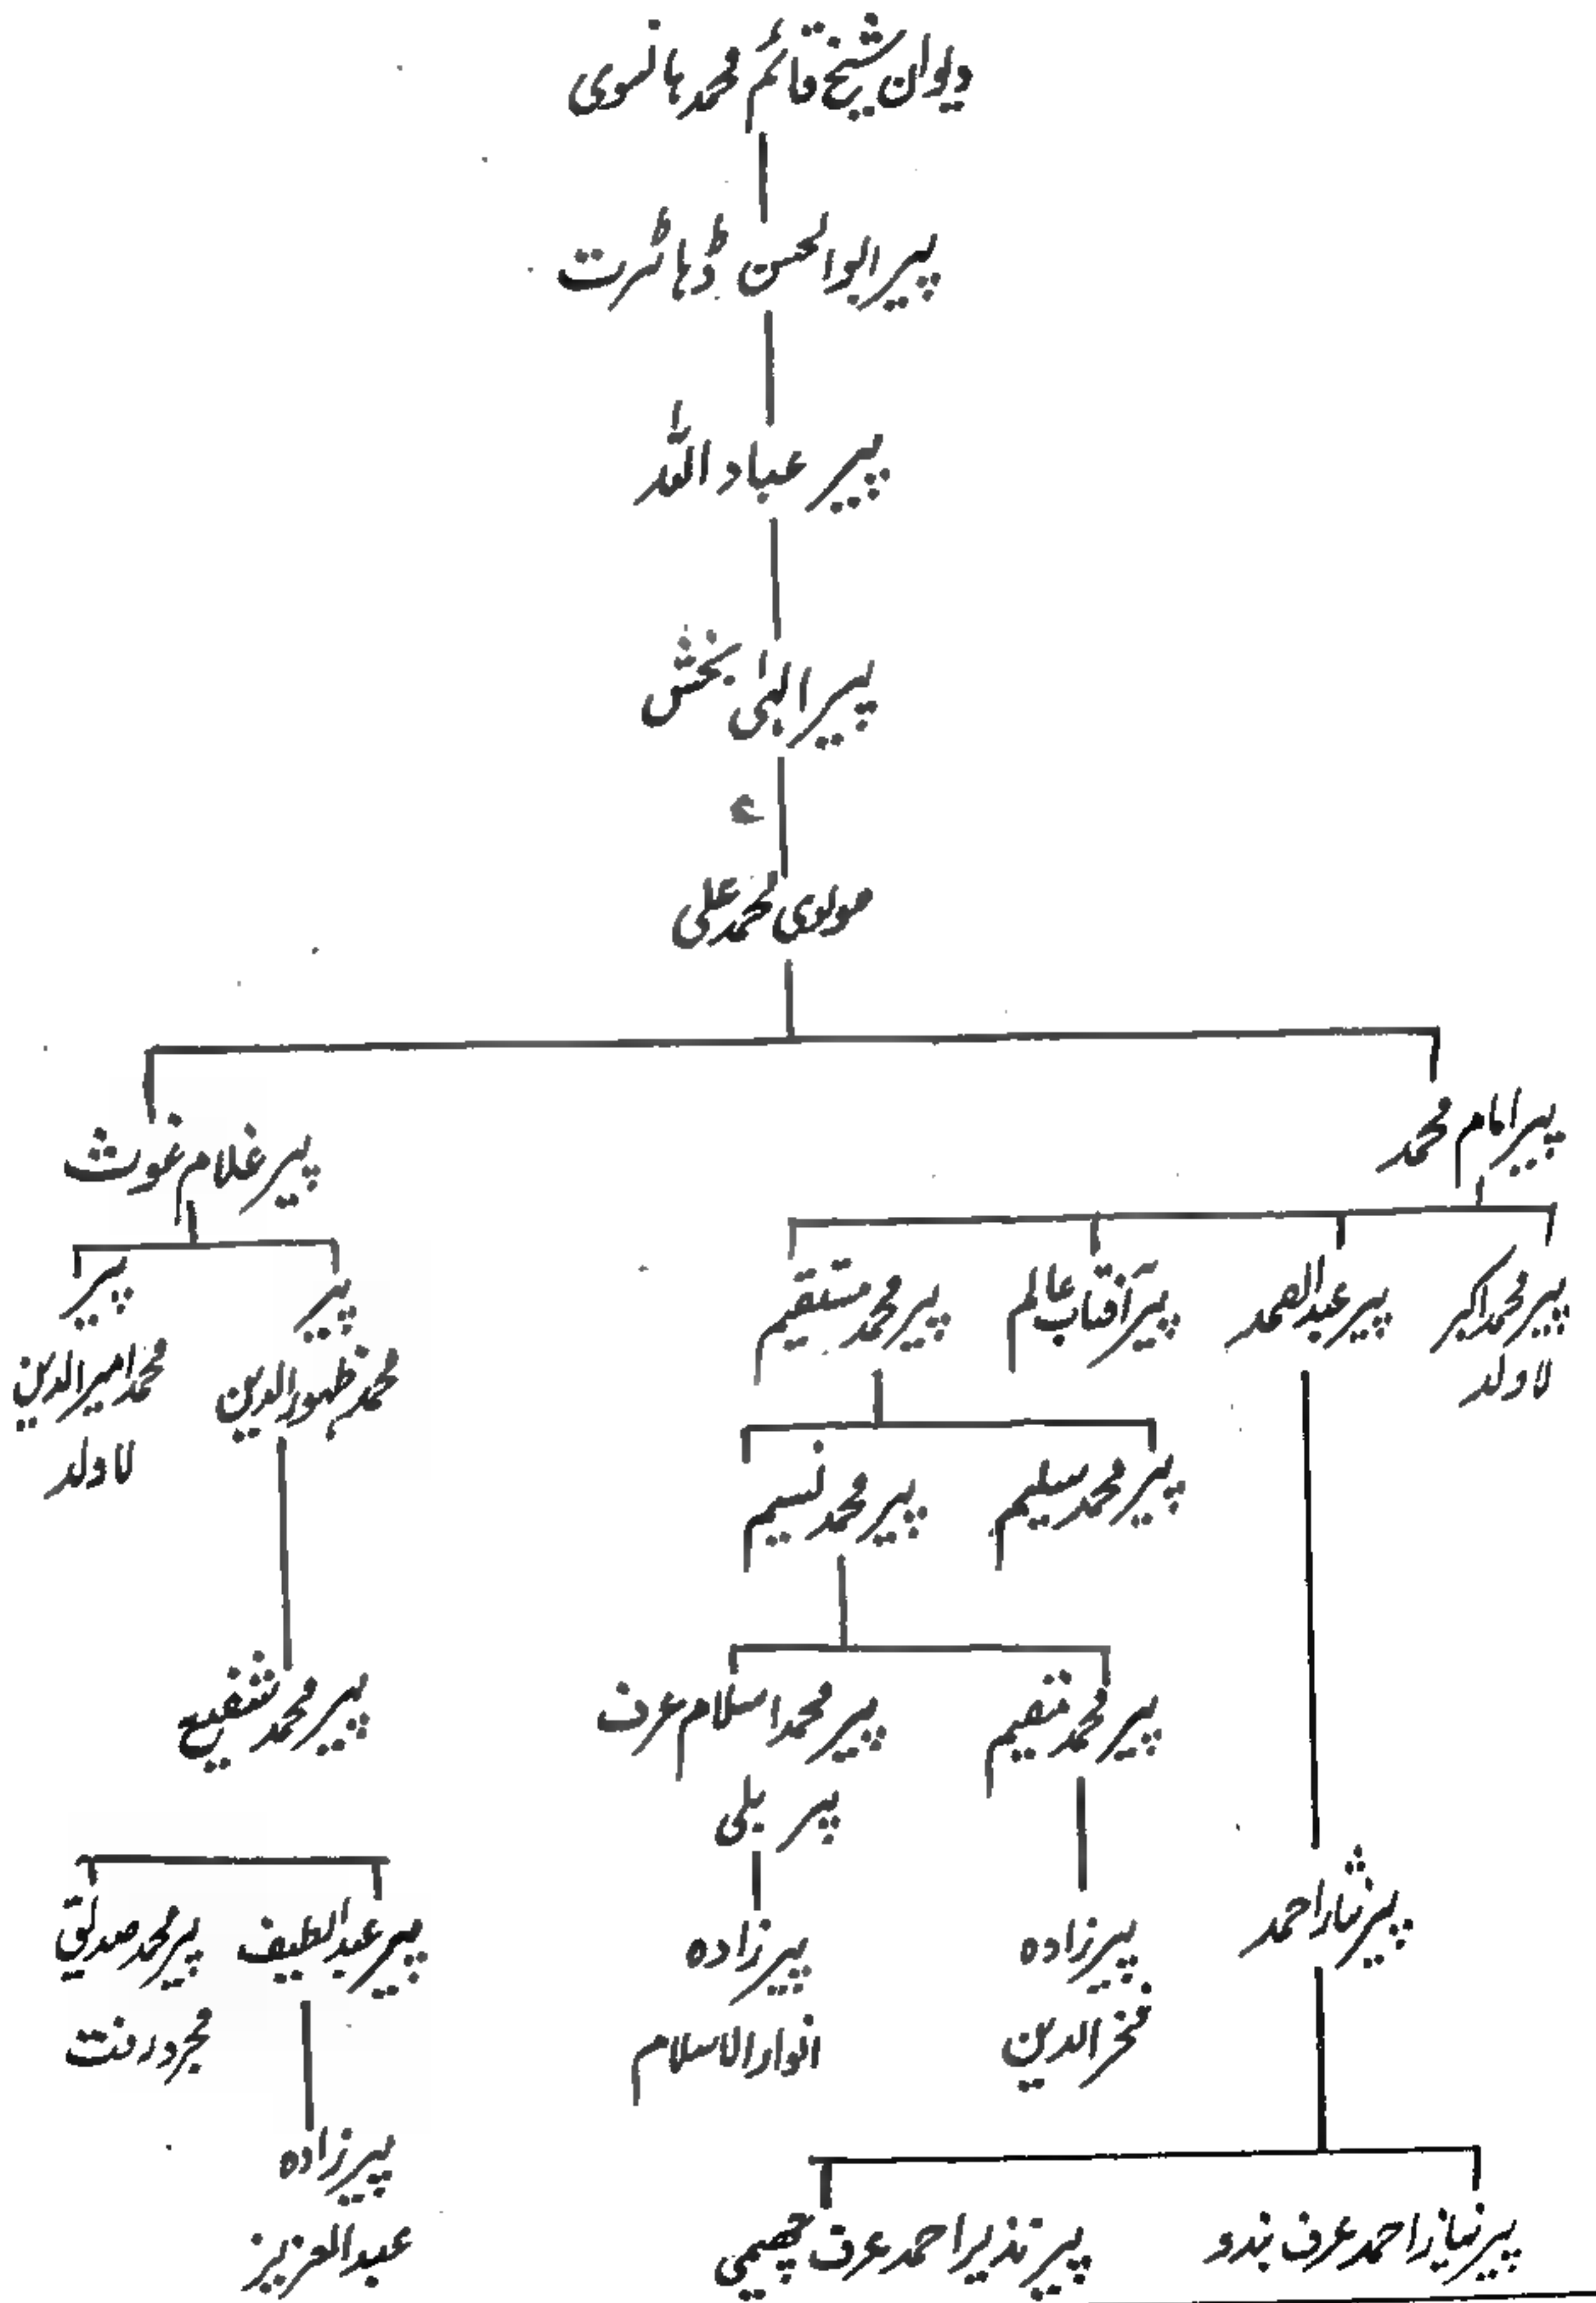 دیوان شیخ قائم محمد ہانسوی
پیر ابوالحسن
پیر عباد اللہ
پیر الٰہی بخش
مولوی محمد علی
پیر امام محمد
پیر غلام غوث
پیر محمد اکبر
لا ولد
پیر عبدالصمد
پیر آفتاب عالم
پیر محمد مستقیم
پیر
محمد ظہورالدین
پیر
محمد امیرالدین
لا ولد
پیر محمد سلیم
پیر محمد نسیم
پیر محمد مقیم
پیر محمد اسلام عرف
پیر بلی
پیر محمد شفیع
پیر نثار احمد
پیرزادہ
فخرالدین
پیرزادہ
انوارالاسلام
پیر عبدالطیف
پیر محمد صدیق
مجرد رفت
پیرزادہ
عبدالعزیز
پیر نیاز احمد عرف بندو
پیر نذیر احمد عرف چھیمی